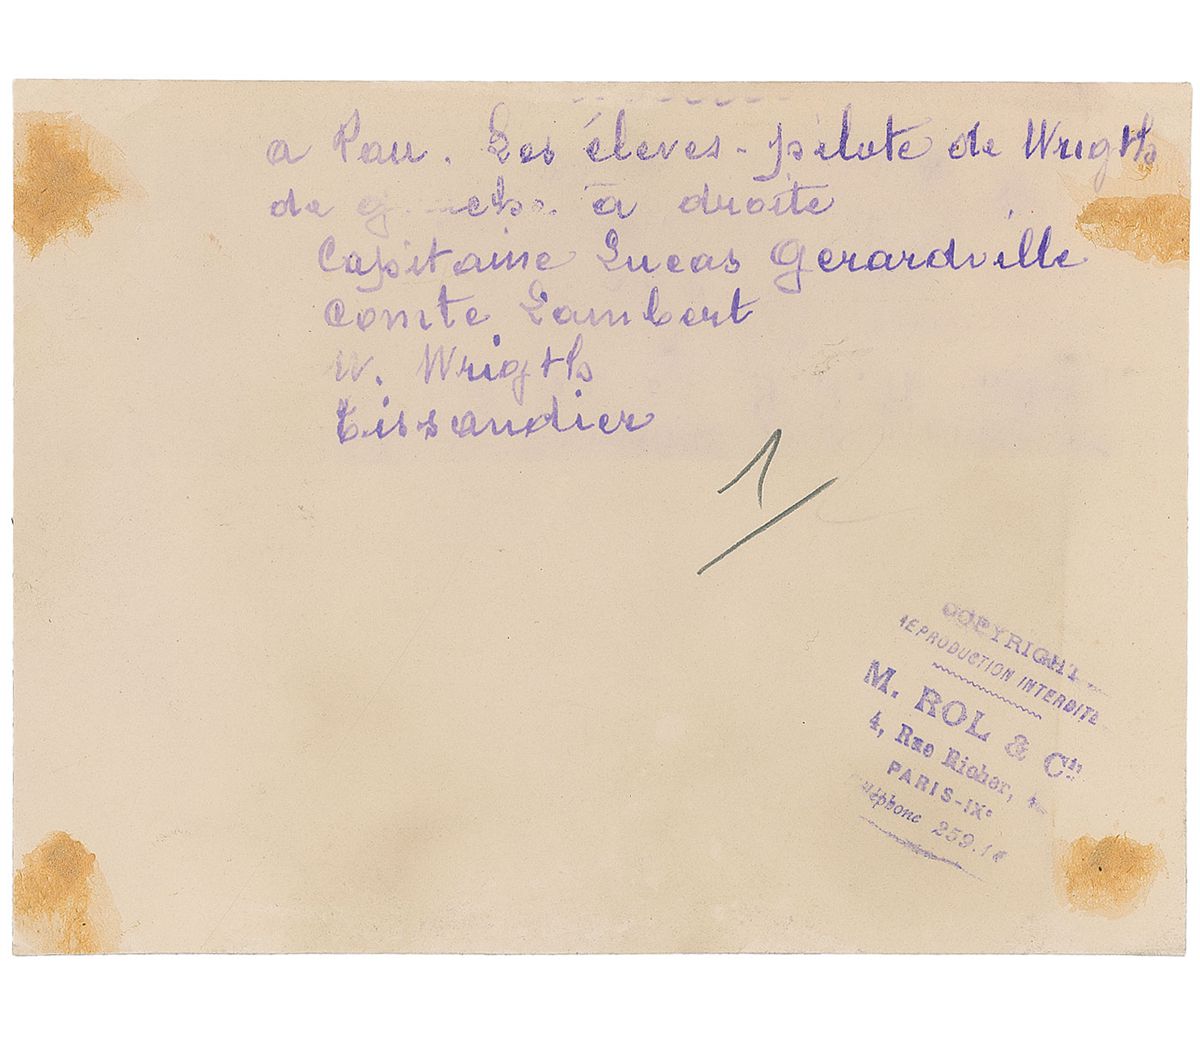 a Pau. Les éleves-pilote de Wrigth
de gauche à droite
Capitaine Lucas Gerardville
Comte Lambert
W. Wrigth
Tissandier
1/
COPYRIGHT
REPRODUCTION INTERDITE
M. ROL & Cie
4, Rue Richer, 4
PARIS-IXe
Téléphone